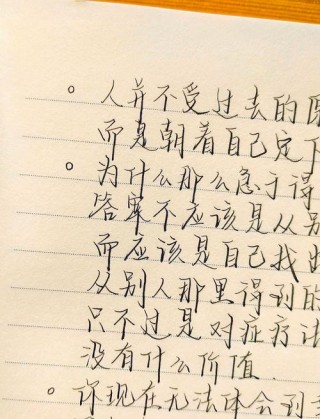 。人并不受过去的
而是朝着自己定下
。为什么那么急于得
答案不应该是从别
而应该是自己找出
从别人那里得到的
只不过是对症疗法
没有什么价值.
。你现在无法体会到